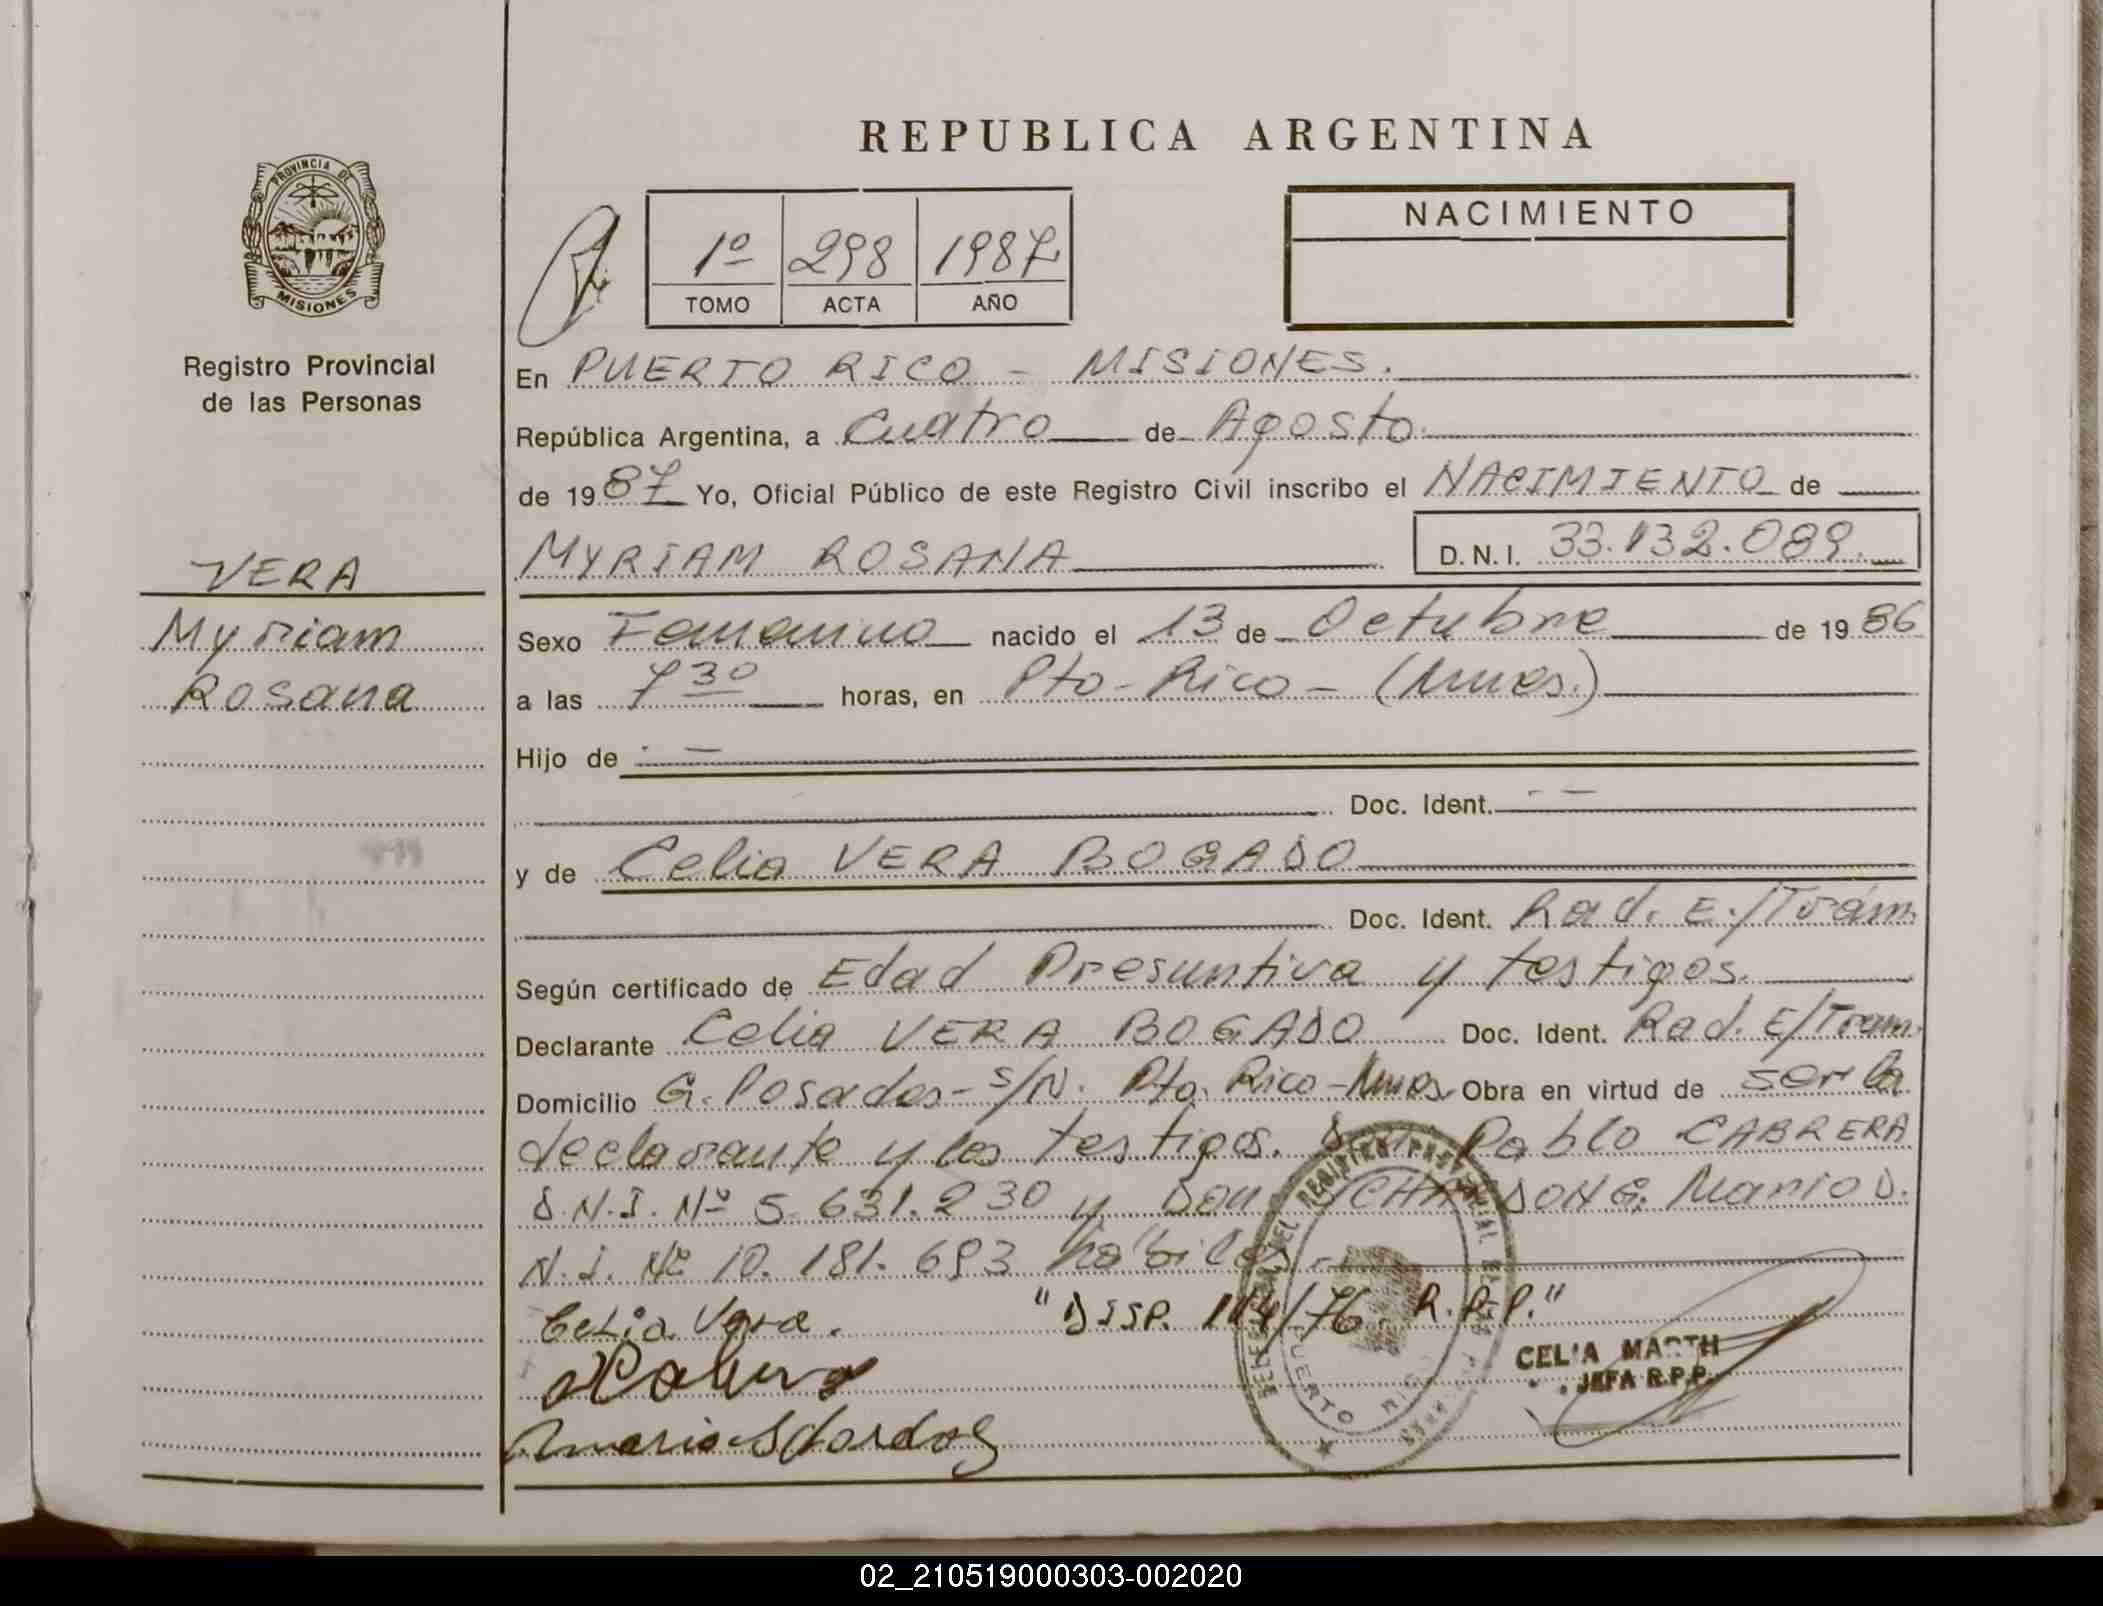 REPUBLICA ARGENTINA
PROVINCIA DE
MISIONES
1º 298 1987
TOMO ACTA AÑO
NACIMIENTO
Registro Provincial
de las Personas
VERA
Myriam
Rosana
En PUERTO RICO - MISIONES.
República Argentina, a Cuatro de Agosto
de 1987 Yo, Oficial Público de este Registro Civil inscribo el NACIMIENTO de
MYRIAM ROSANA D.N.I. 33.132.089.
Sexo Femenino nacido el 13 de Octubre de 1986
a las 7 30 horas, en Pto-Rico-(Mnes.)
Hijo de - —
Doc. Ident. - —
y de Celia VERA BOGADO
Doc. Ident. Rad. E./Trám.
Según certificado de Edad Presuntiva y testigos.
Declarante Celia VERA BOGADO Doc. Ident. Rad. E/Tram.
Domicilio G. Posadas- s/N. Pto. Rico-Mnes. Obra en virtud de ser la
declarante y los testigos. Pablo CABRERA
D.N.I. Nº 5.631.230 y Don G. Mario D.
N.I. Nº 10.181.693 hábiles.-
Celia Vera. "DISP. 114/76 R.P.P."
CELIA MARTH
JEFA R.P.P.
DEL REGISTRO PROVINCIAL
PUERTO RICO
02_210519000303-002020